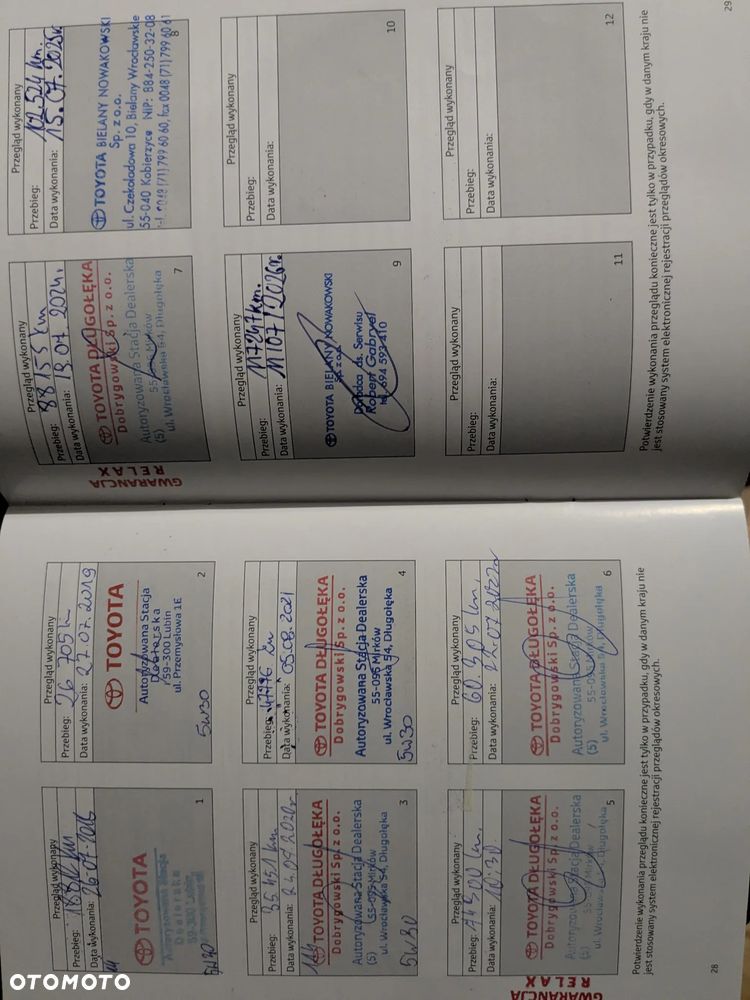 Przegląd wykonany
Przebieg:
Data wykonania:
TOYOTA
1
5W30
Przegląd wykonany
Przebieg: 26 705 km
Data wykonania: 27.07.2019
TOYOTA
Autoryzowana Stacja
Dealerska
59-300 Lubin
ul. Przemysłowa 1E
2
5W30
Przegląd wykonany
Przebieg: 35 451 km.
Data wykonania:
TOYOTA DŁUGOŁĘKA
Dobrygowski Sp. z o.o.
Autoryzowana Stacja Dealerska
(5) 55-095 Mirków
ul. Wrocławska 54, Długołęka
3
5W30
Przegląd wykonany
Przebieg: 47776 km
Data wykonania: 05.08.2021
TOYOTA DŁUGOŁĘKA
Dobrygowski Sp. z o.o.
Autoryzowana Stacja Dealerska
55-095 Mirków
ul. Wrocławska 54, Długołęka
4
5W30
Przegląd wykonany
Przebieg:
Data wykonania:
TOYOTA DŁUGOŁĘKA
Dobrygowski Sp. z o.o.
Autoryzowana Stacja Dealerska
(5) 55-095 Mirków
ul. Wrocławska 54, Długołęka
5
Przegląd wykonany
Przebieg: 60.305 km.
Data wykonania:
TOYOTA DŁUGOŁĘKA
Dobrygowski Sp. z o.o.
Autoryzowana Stacja Dealerska
(5) 55-095 Mirków
ul. Wrocławska 54, Długołęka
6
Potwierdzenie wykonania przeglądu konieczne jest tylko w przypadku, gdy w danym kraju nie
jest stosowany system elektronicznej rejestracji przeglądów okresowych.
GWARANCJA
RELAX
28
GWARANCJA
RELAX
Przegląd wykonany
Przebieg: 88155 km
Data wykonania: 19.07.2024r.
TOYOTA DŁUGOŁĘKA
Dobrygowski Sp. z o.o.
Autoryzowana Stacja Dealerska
(5) 55-095 Mirków
ul. Wrocławska 54, Długołęka
7
Przegląd wykonany
Przebieg: 102524 km.
Data wykonania: 15.07.2025r.
TOYOTA BIELANY NOWAKOWSKI
Sp. z o.o.
ul. Czekoladowa 10, Bielany Wrocławskie
55-040 Kobierzyce NIP: 884-250-32-08
tel. 0048 (71) 799 60 60, fax 0048 (71) 799 60 61
8
Przegląd wykonany
Przebieg: 117247km.
Data wykonania: 11/07/2026r.
TOYOTA BIELANY NOWAKOWSKI
Sp. z o.o.
Doradca ds. Serwisu
Robert Gabryel
tel. 694 593 410
9
Przegląd wykonany
Przebieg:
Data wykonania:
10
Przegląd wykonany
Przebieg:
Data wykonania:
11
Przegląd wykonany
Przebieg:
Data wykonania:
12
Potwierdzenie wykonania przeglądu konieczne jest tylko w przypadku, gdy w danym kraju nie
jest stosowany system elektronicznej rejestracji przeglądów okresowych.
29
OTOMOTO